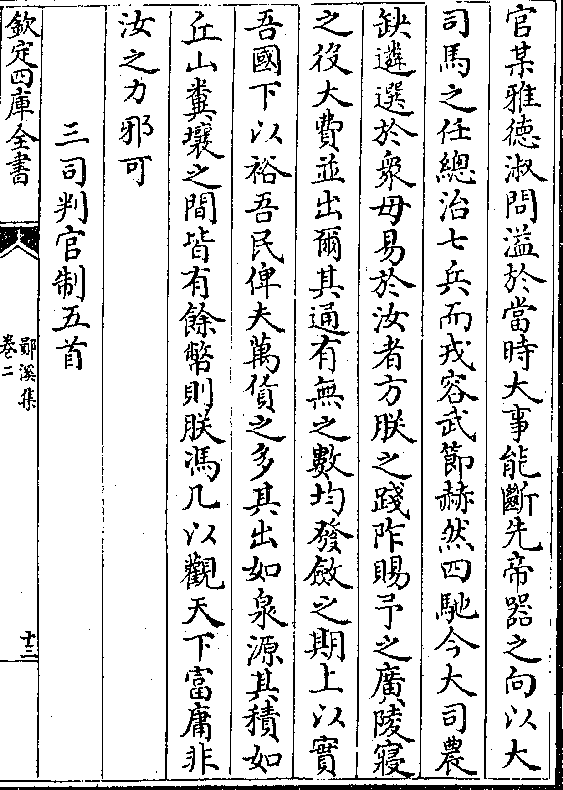 官某雅德淑問溢於當時大事能斷先帝器之向以大
司馬之任總治七兵而戎容武節赫然四馳今大司農
缺遴選於衆毋易於汝者方朕之踐阼賜予之廣陵寢
之役大費並出爾其通有無之數均發斂之期上以實
吾國下以裕吾民俾夫萬貨之多其出如泉源其積如
丘山糞壤之間皆有餘幣則朕馮几以觀天下富庸非
汝之力邪可
三司判官制五首
欽定四庫全書
鄖溪集
卷二
十三